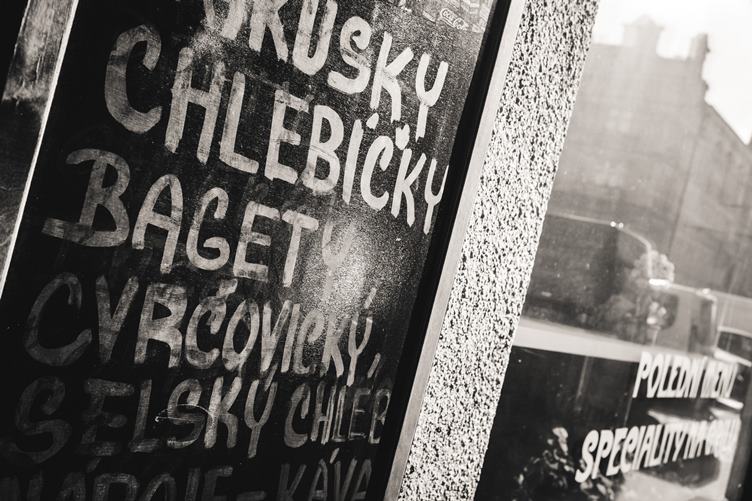 CHLEBÍČKY
BAGETY
CVRČOVICKÝ,
SELSKÝ CHLÉB
NÁPOJE - KÁVA
POLEDNÍ MENU
SPECIALITY NA